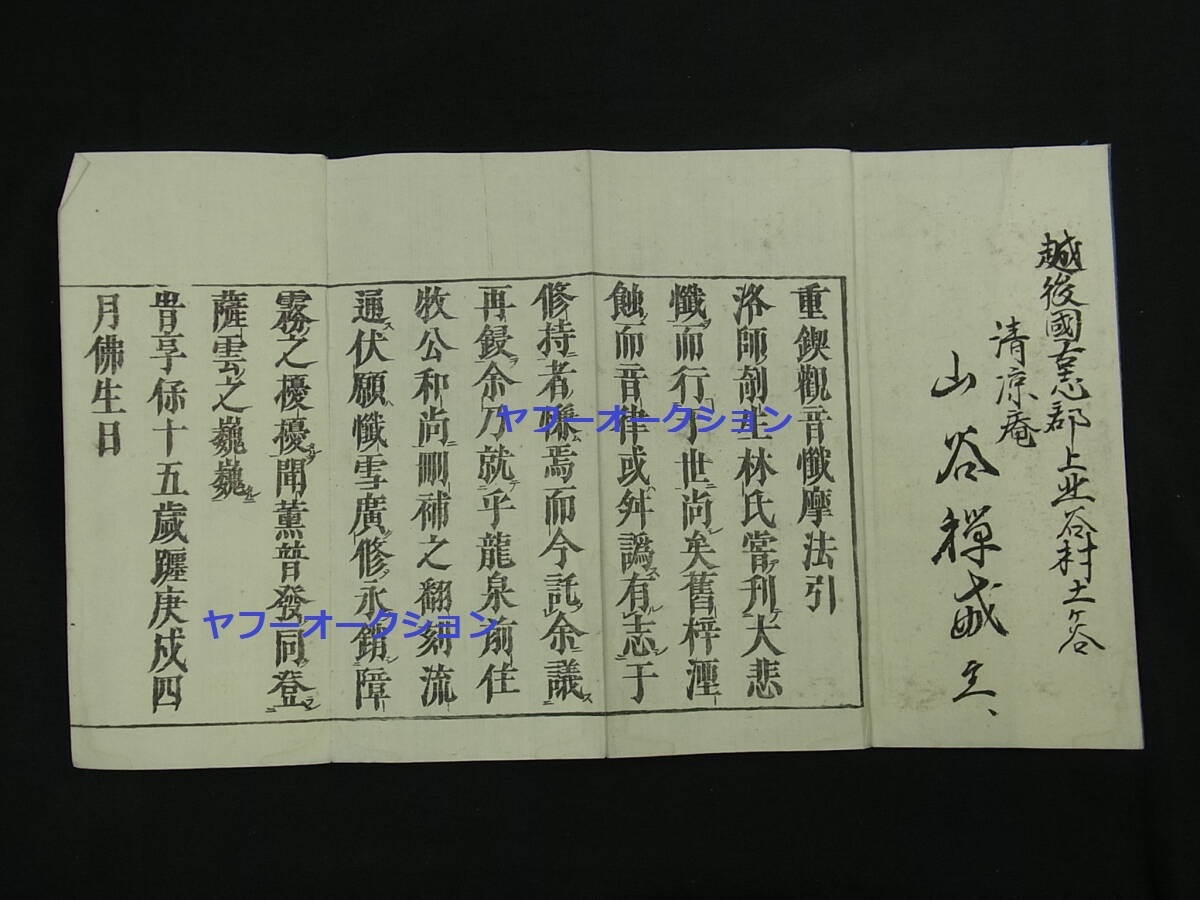 越後國古志郡上北谷村土ヶ谷
清凉庵
山谷禅戒
重鍥觀音懺摩法引
洛師剞生林氏嘗刋大悲
懺而行于世尚矣舊梓湮
蝕而音律或舛譌有志于
修持者慊焉而今託余議
再鋟余乃就乎龍泉前住
牧公和尚刪補之翻刻流
通伏願懺雪廣修永銷障
霧之櫌櫌聞薫普發同登
薩雲之巍巍
旹享保十五歲躔庚戍四
月佛生日
ヤフーオークション
ヤフーオークション